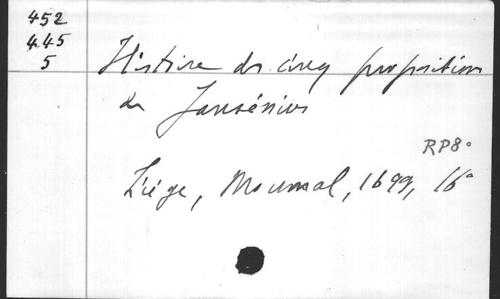 452
4.45
5
Histoire des cinq propositions
de Jansénius
RP8°
Liége, Moumal, 1699, 16°